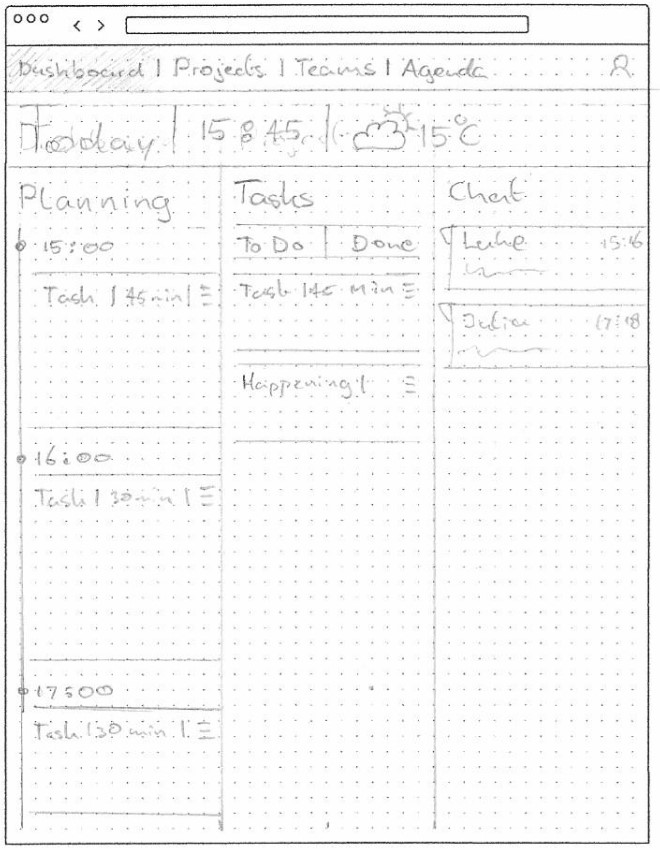 Dashboard | Projects | Teams | Agenda
Today | 15:45 | 15°C
Planning
15:00
Task | 45 min |
16:00
Task | 30 min |
17:00
Task | 30 min |
Tasks
To Do | Done
Task | 45 Min
Happening |
Chat
Luke 15:16
Julia 17:18